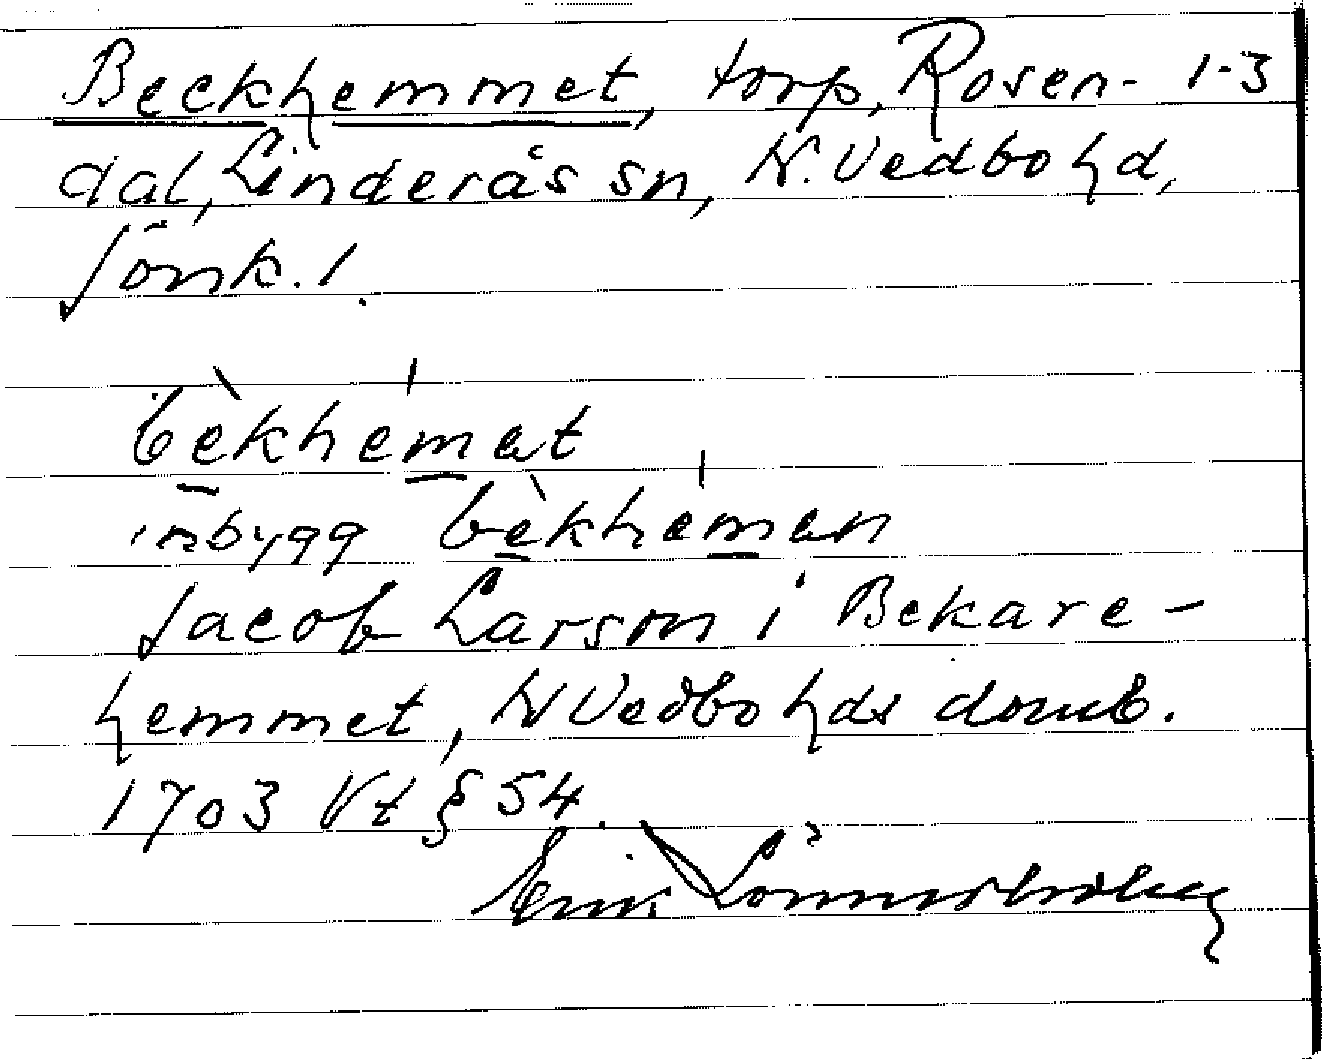 Beckhemmet, torp, Rosen- 1-3
dal, Linderås sn, N. Vedbo hd,
Jönk. l.
bèkhémat
inbygg bèkhéman
Jacob Larson i Bekare-
hemmet, N Vedbo hds domb.
1703 Vt § 54.
Erik